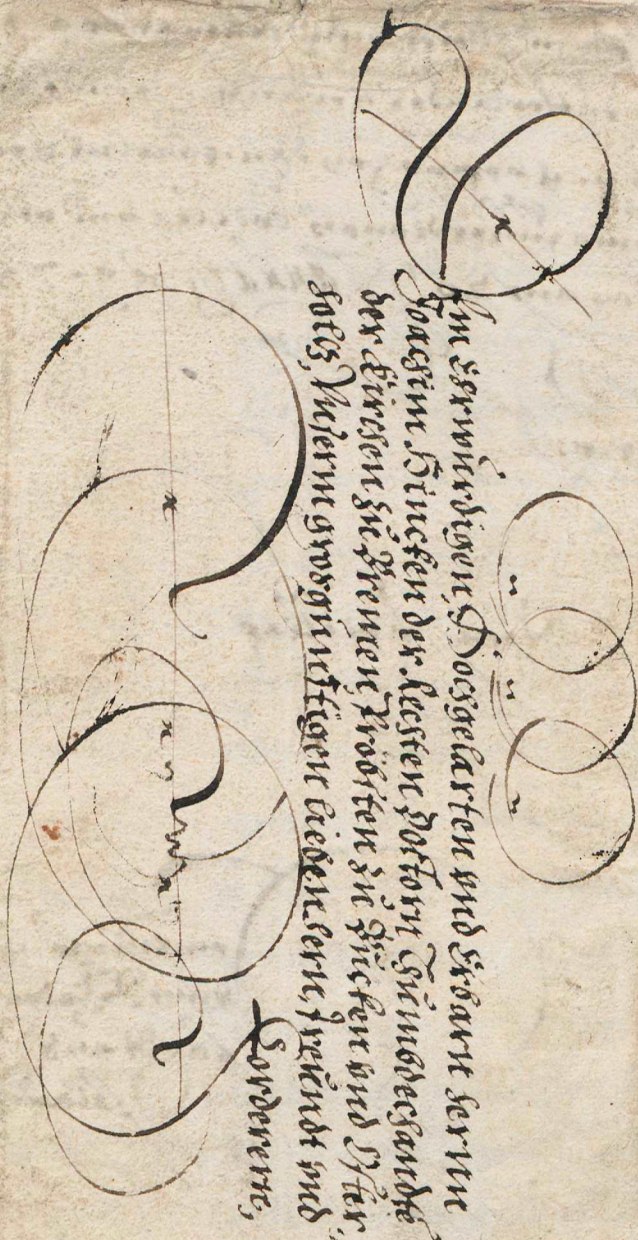 Dem Ehrwürdigen, Hochgelarten vnd Erbarn Hernn
Joachim Hincken der Rechten Doctorn Thumbdechandte
der Kirchen zu Bremen, Pröbsten zu Bücken vnd Oster
holtz, Unserm grosgünstigen lieben Hern, Freundt vnd
Forderern,